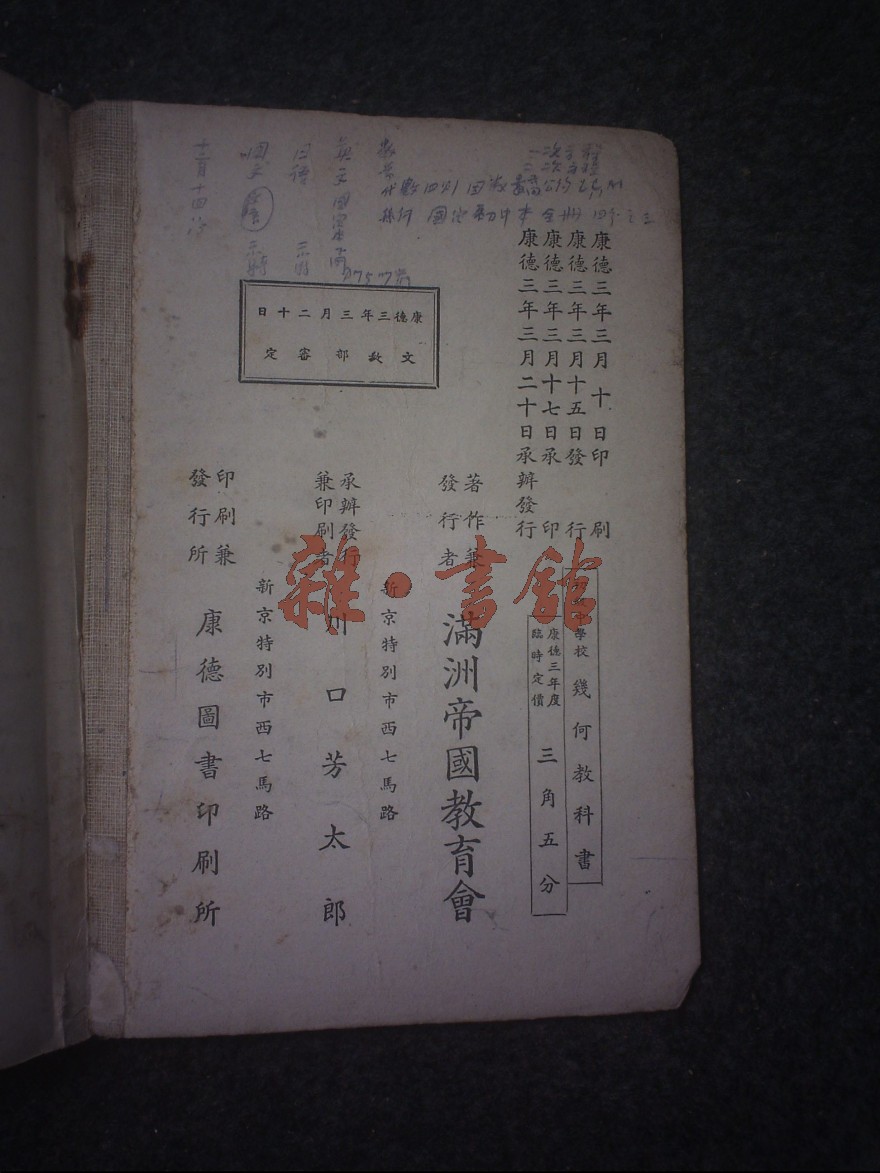 康德三年三月十日印刷
康德三年三月十五日發行
康德三年三月十七日承印
康德三年三月二十日承辦發行
中學校 幾何教科書
康德三年度
臨時定價
三角五分
著作兼
發行者
滿洲帝國教育會
新京特別市西七馬路
承辦發行
兼印刷者
川口芳太郎
新京特別市西七馬路
印刷兼
發行所
康德圖書印刷所
康德三年三月二十日
文教部審定
雜·書館
國文
日語